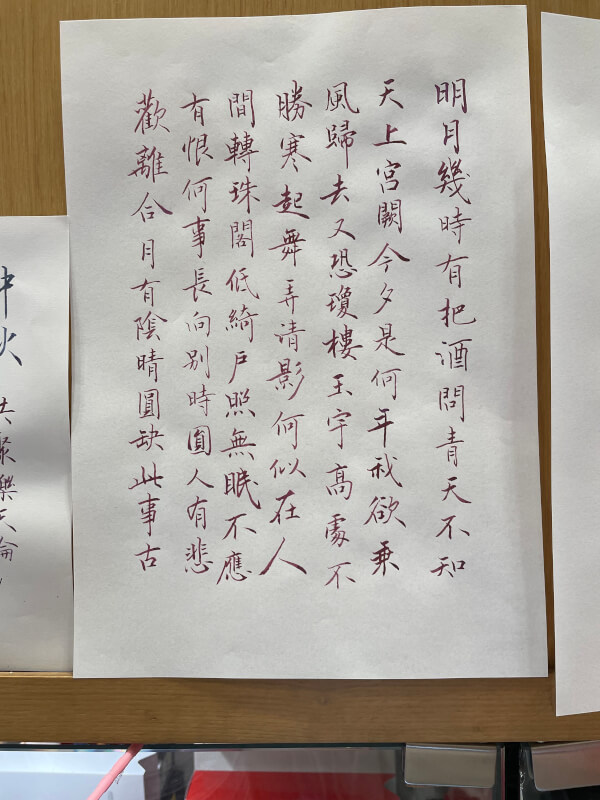 明月幾時有把酒問青天不知
天上宮闕今夕是何年我欲乘
風歸去又恐瓊樓玉宇高處不
勝寒起舞弄清影何似在人
間轉珠閣低綺戶照無眠不應
有恨何事長向別時圓人有悲
歡離合月有陰晴圓缺此事古
共聚樂天倫